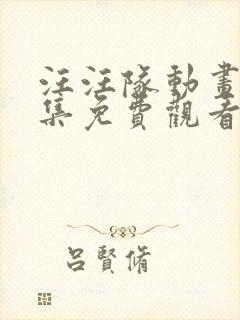 汪汪隊動畫
集免費觀看
呂賢脩